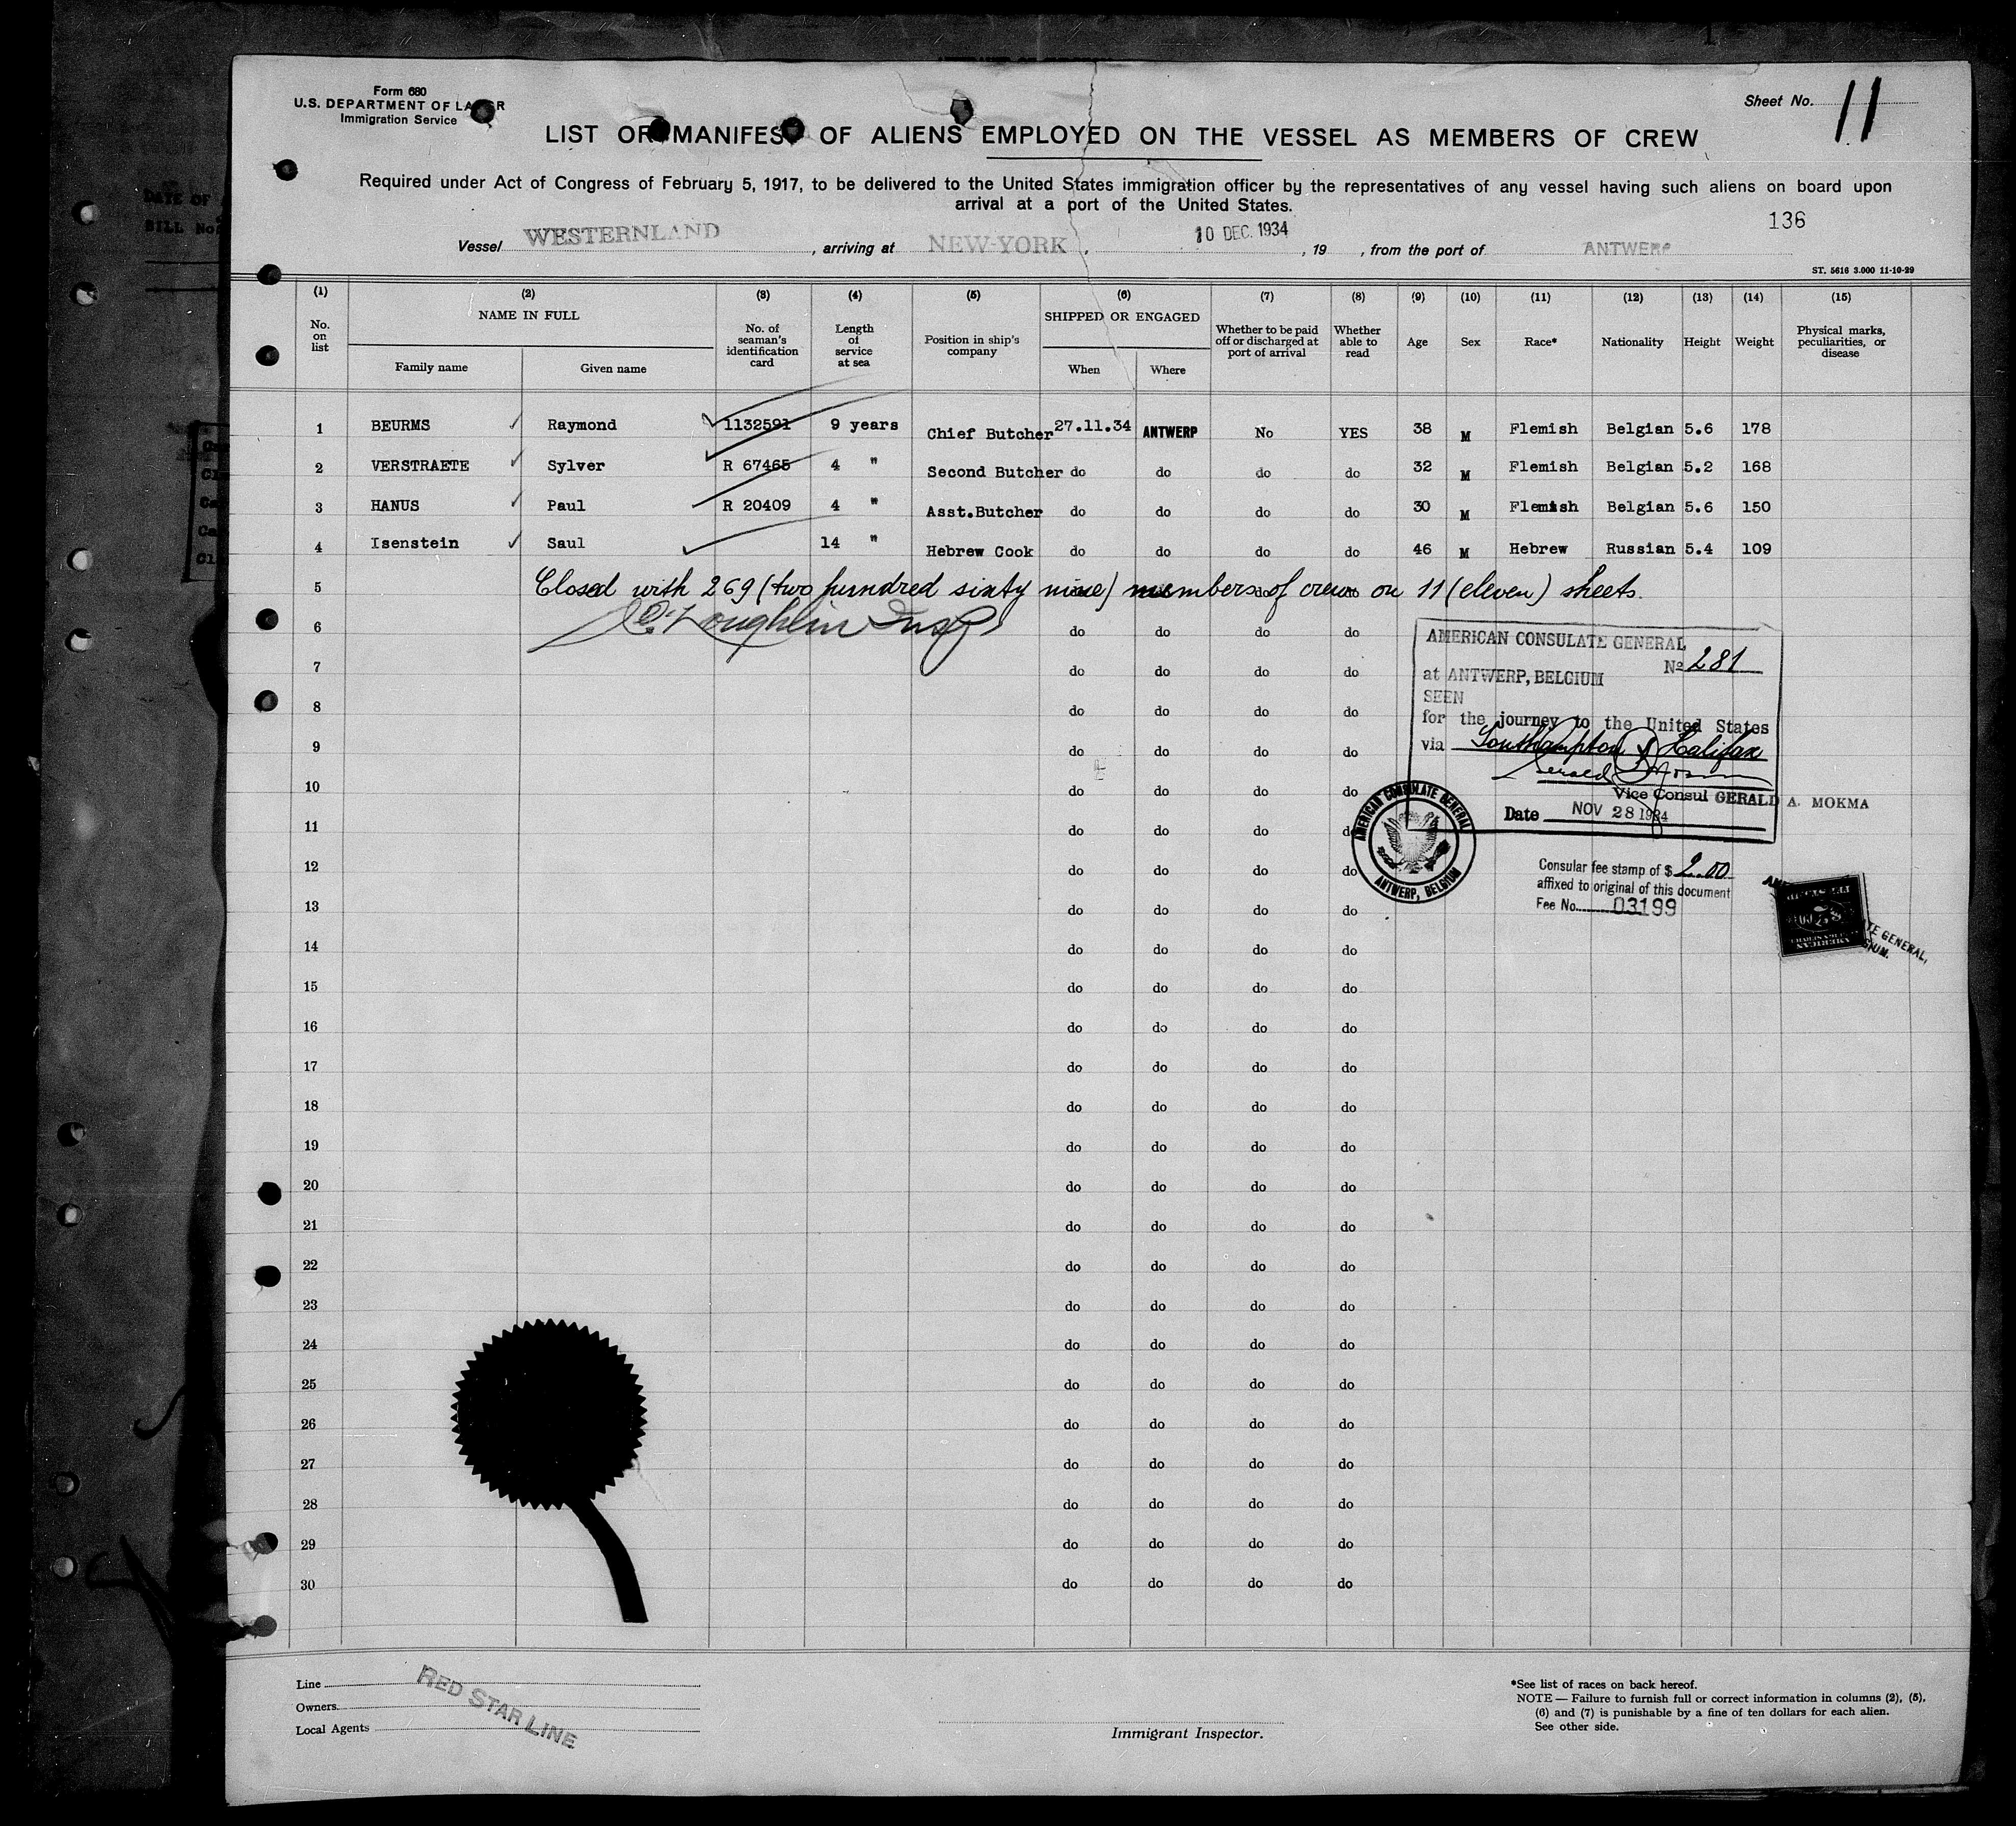 Form 680
U.S. DEPARTMENT OF LABOR
Immigration Service
Sheet No. 11
LIST OR MANIFEST OF ALIENS EMPLOYED ON THE VESSEL AS MEMBERS OF CREW
Required under Act of Congress of February 5, 1917, to be delivered to the United States immigration officer by the representatives of any vessel having such aliens on board upon
arrival at a port of the United States.
136
Vessel WESTERNLAND, arriving at NEW-YORK, 10 DEC. 1934, 19 , from the port of ANTWERP
ST. 5616 3.000 11-10-29
(1) (2) (3) (4) (5) (6) (7) (8) (9) (10) (11) (12) (13) (14) (15)
No. on list NAME IN FULL Family name Given name No. of seaman's identification card Length of service at sea Position in ship's company SHIPPED OR ENGAGED When Where Whether to be paid off or discharged at port of arrival Whether able to read Age Sex Race* Nationality Height Weight Physical marks, peculiarities, or disease
1 BEURMS Raymond 1132591 9 years Chief Butcher 27.11.34 ANTWERP No YES 38 M Flemish Belgian 5.6 178
2 VERSTRAETE Sylver R 67465 4 " Second Butcher do do do do 32 M Flemish Belgian 5.2 168
3 HANUS Paul R 20409 4 " Asst.Butcher do do do do 30 M Flemish Belgian 5.6 150
4 Isenstein Saul 14 " Hebrew Cook do do do do 46 M Hebrew Russian 5.4 109
5 Closed with 269 (two hundred sixty nine) members of crew on 11 (eleven) sheets.
6 do do do do
7 do do do do
8 do do do do
9 do do do do
10 do do do do
11 do do do do
12 do do do do
13 do do do do
14 do do do do
15 do do do do
16 do do do do
17 do do do do
18 do do do do
19 do do do do
20 do do do do
21 do do do do
22 do do do do
23 do do do do
24 do do do do
25 do do do do
26 do do do do
27 do do do do
28 do do do do
29 do do do do
30 do do do do
AMERICAN CONSULATE GENERAL
No 281
at ANTWERP, BELGIUM
SEEN
for the journey to the United States
via Southampton & Halifax
Vice Consul GERALD A. MOKMA
Date NOV 28 1934
AMERICAN CONSULATE GENERAL
ANTWERP, BELGIUM
Consular fee stamp of $ 2.00
affixed to original of this document
Fee No. 03199
Line
Owners
Local Agents
RED STAR LINE
Immigrant Inspector.
*See list of races on back hereof.
NOTE — Failure to furnish full or correct information in columns (2), (5),
(6) and (7) is punishable by a fine of ten dollars for each alien.
See other side.